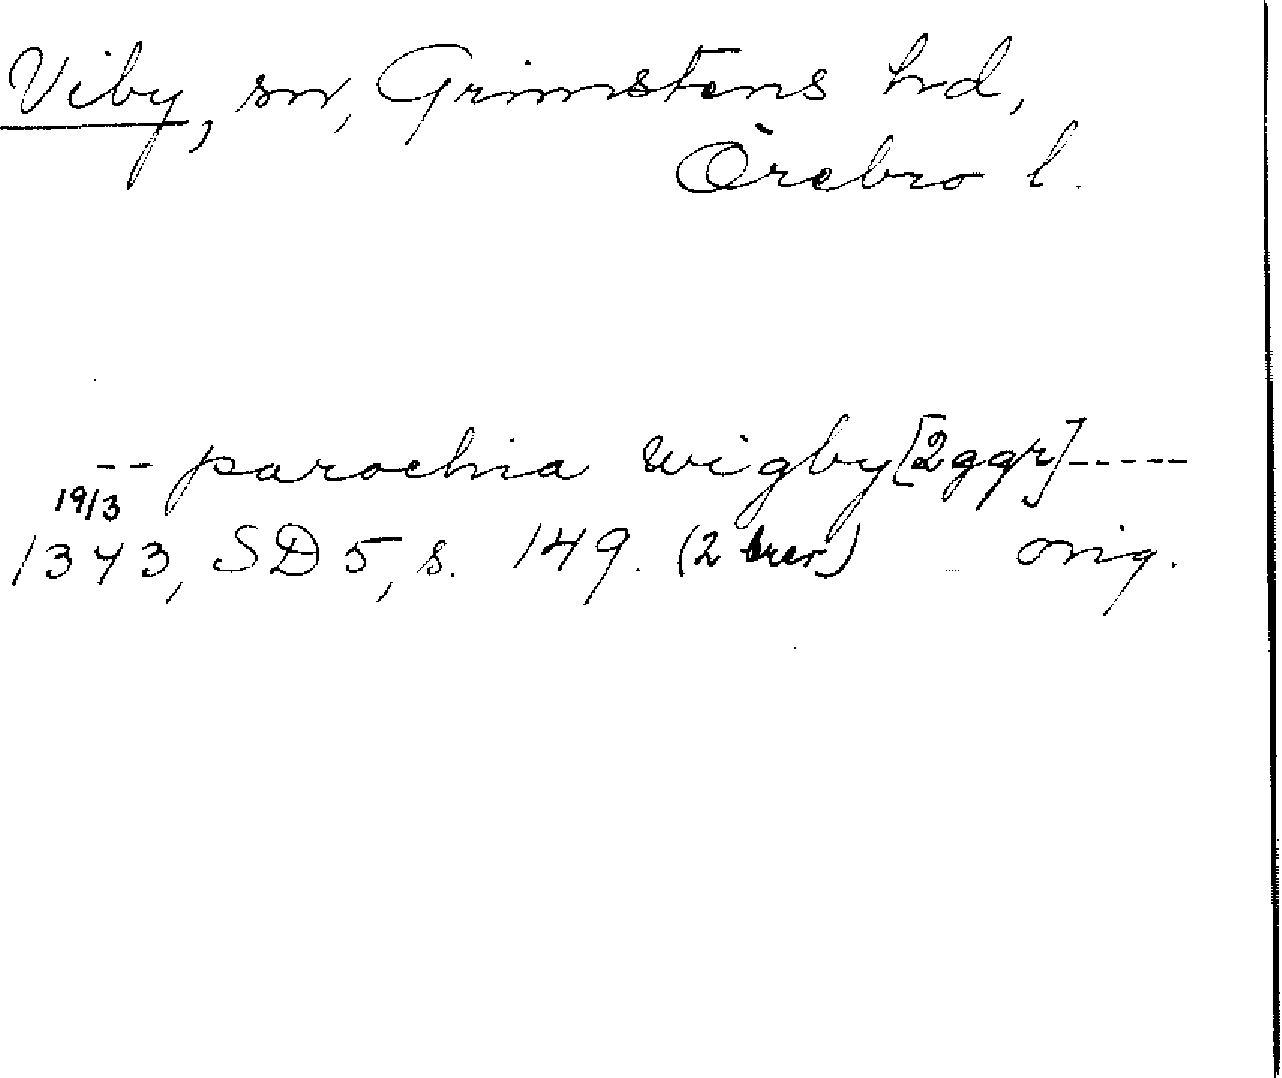 Viby, sn, Grimstens hd,
Örebro l.
-- parochia wigby [2 ggr] -----
19/3
1343, SD 5, s. 149. (2 brev) orig.